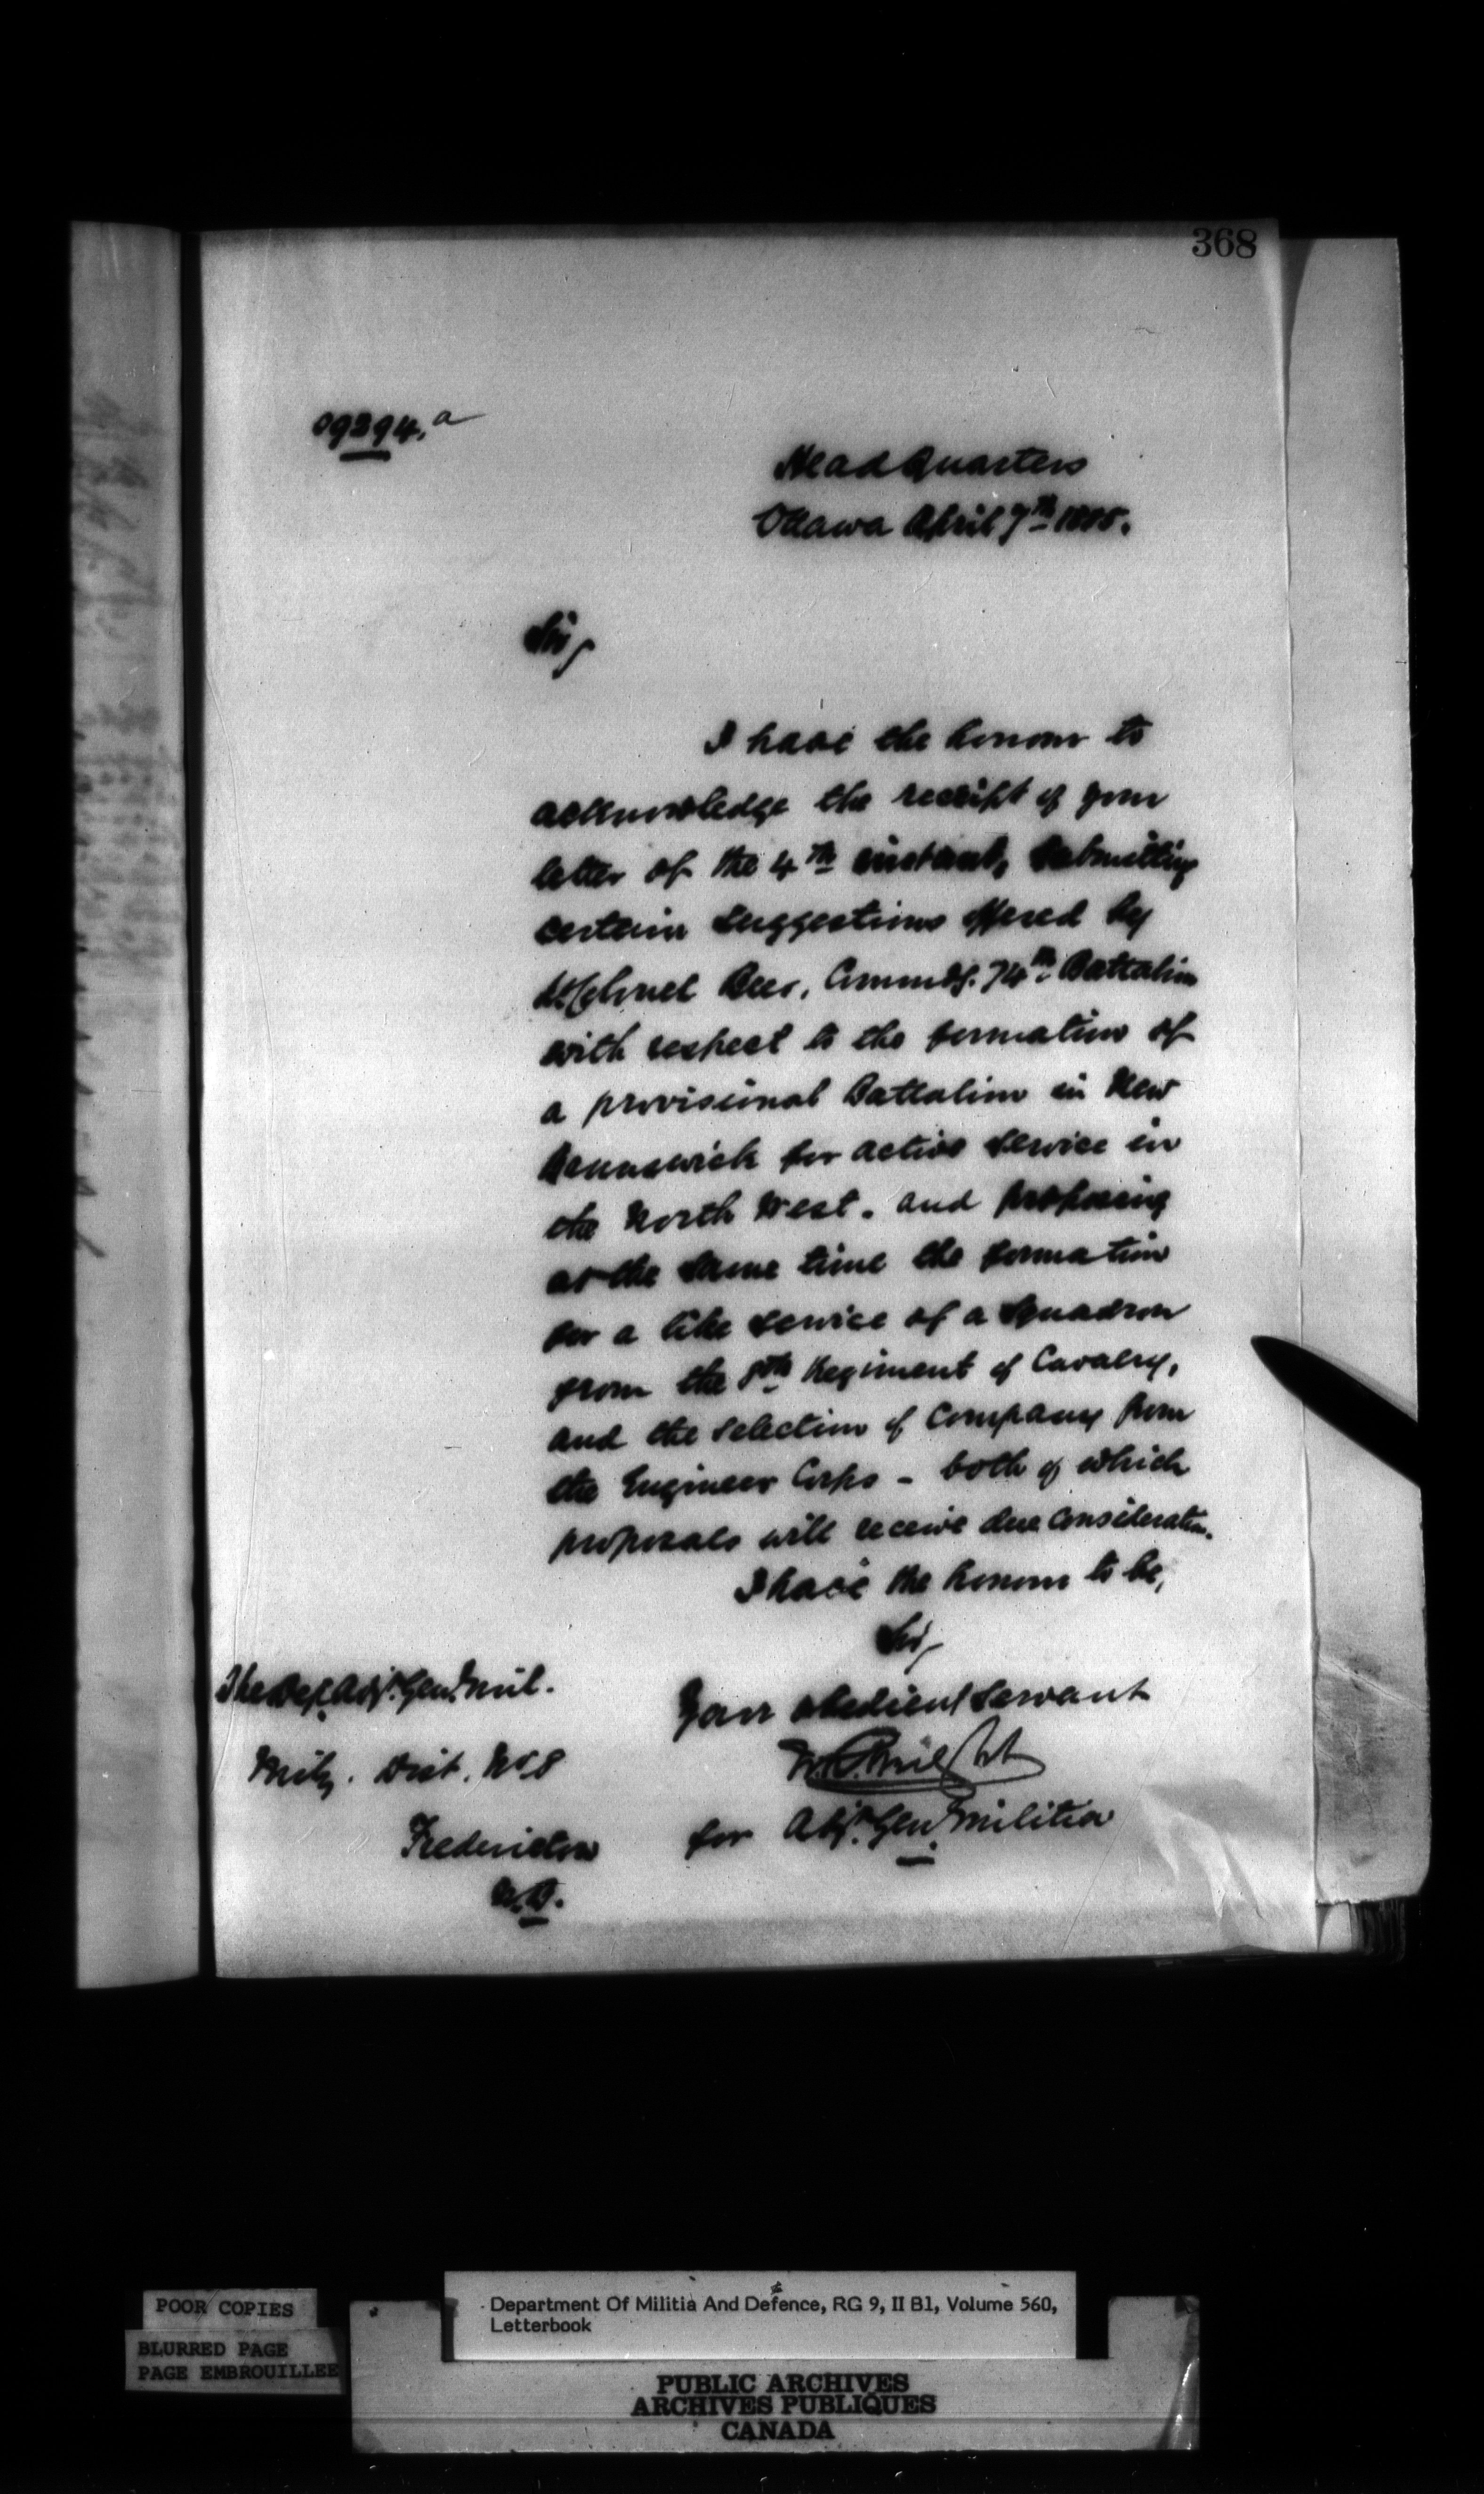 368
09294.a
Head Quarters
Ottawa April 7th 1885.
Sir,
I have the honour to
acknowledge the receipt of your
letter of the 4th instant, submitting
certain suggestions offered by
Lt Colonel Beer, Commdg. 74th Battalion
with respect to the formation of
a provisional Battalion in New
Brunswick for active service in
the North West. and proposing
at the same time the formation
for a like service of a Squadron
from the 8th Regiment of Cavalry,
and the selection of Company from
the Engineer Corps - both of which
proposals will receive due consideration.
I have the honour to be,
Sir,
Your obedient servant
for Adjt. Genl. Militia
The Dep. Adjt. Genl. Mil.
Mily. Dist. No. 8
Fredericton
N.B.
POOR COPIES
BLURRED PAGE
PAGE EMBROUILLEE
Department Of Militia And Defence, RG 9, II B1, Volume 560,
Letterbook
PUBLIC ARCHIVES
ARCHIVES PUBLIQUES
CANADA